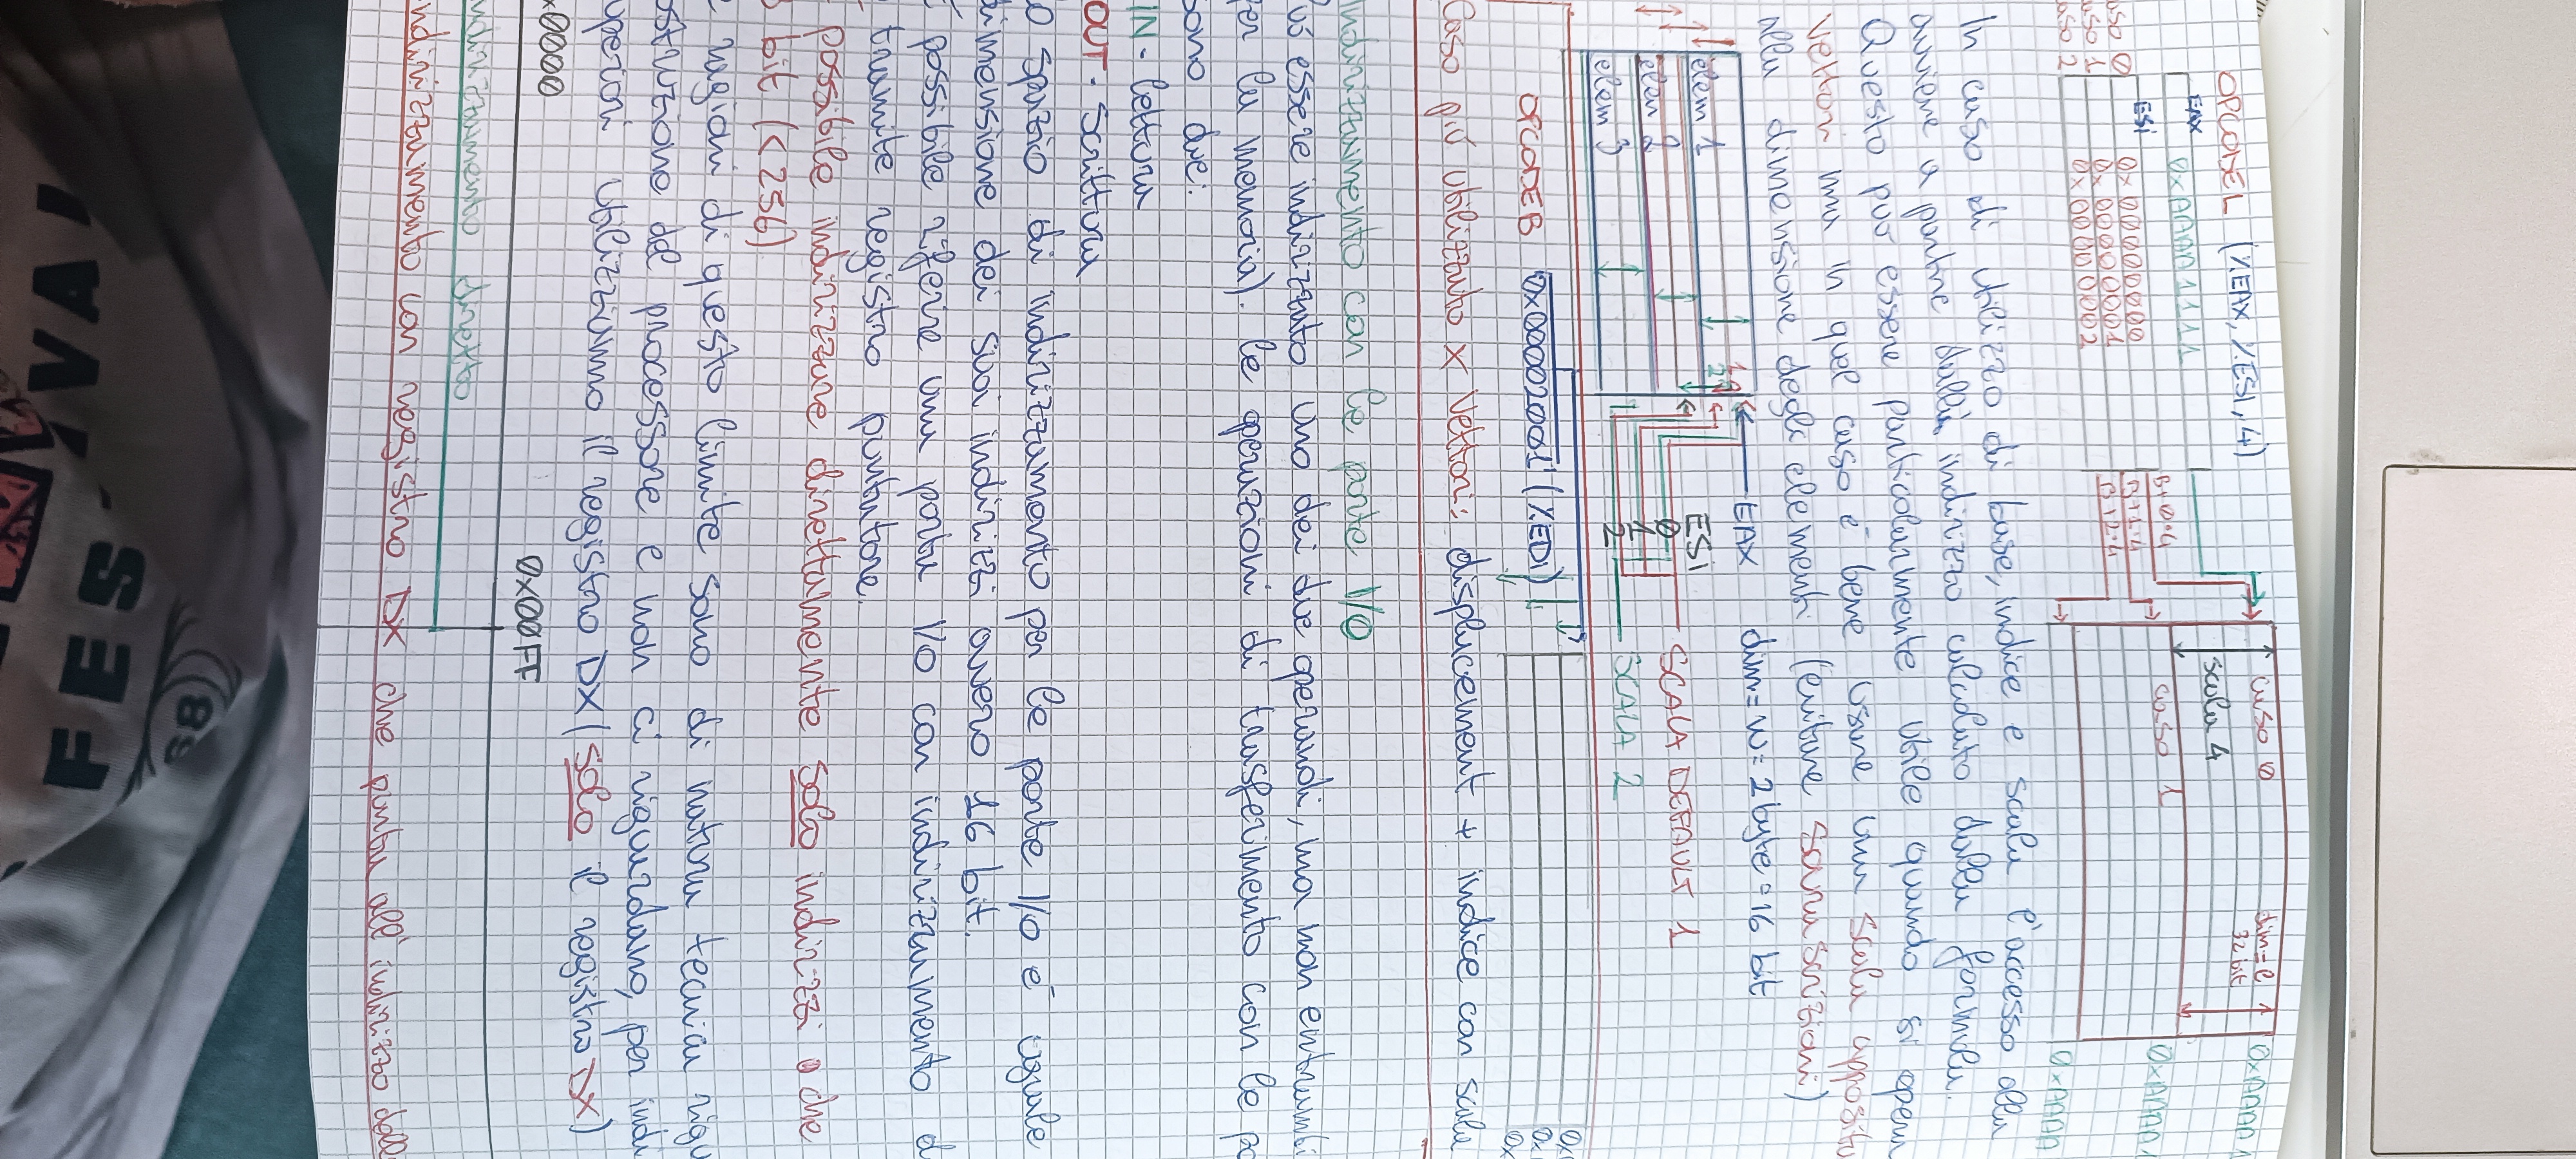 OPCODEL (%EAX, %ESI, 4)
EAX 0xAAAA1111
ESI
caso 0 0x00000000 B+0·4
caso 1 0x00000001 B+1·4
caso 2 0x00000002 B+2·4
caso 0
scala 4
caso 1
dim=l
32 bit
0xAAAA
0xAAAA
0xAAAA
In caso di utilizzo di base, indice e scala l'accesso alla
avviene a partire dalla indirizzo calcolato dalla formula.
Questo può essere particolarmente utile quando si opera
vettori ma in quel caso è bene usare una scala apposita
alla dimensione degli elementi (evitare sovrascrizioni)
EAX dim=w=2byte=16 bit
ESI
elem 1
elem 2
elem 3
0
1
2
SCALA DEFAULT 1
SCALA 2
OPCODEB 0x00002001 (%EDI)
Caso più utilizzato x vettori: displacement + indice con scala
Indirizzamento con le porte I/O
Può essere indirizzato uno dei due operandi, ma non entrambi
per la memoria). le operazioni di trasferimento con le po
sono due:
IN - lettura
OUT - scrittura
lo spazio di indirizzamento per le porte I/O è uguale
dimensione dei suoi indirizzi ovvero 16 bit.
È possibile riferire una porta I/O con indirizzamento d
tramite registro puntatore.
È possibile indirizzare direttamente solo indirizzi a due
8 bit (<256)
le ragioni di questo limite sono di natura tecnica rigu
costruzione del processore e non ci riguardano, per indi
superiori utilizziamo il registro DX (solo il registro DX)
0x0000 0x00FF
indirizzamento diretto
indirizzamento con registro DX che punta all'indirizzo dell
VAI
FES
68